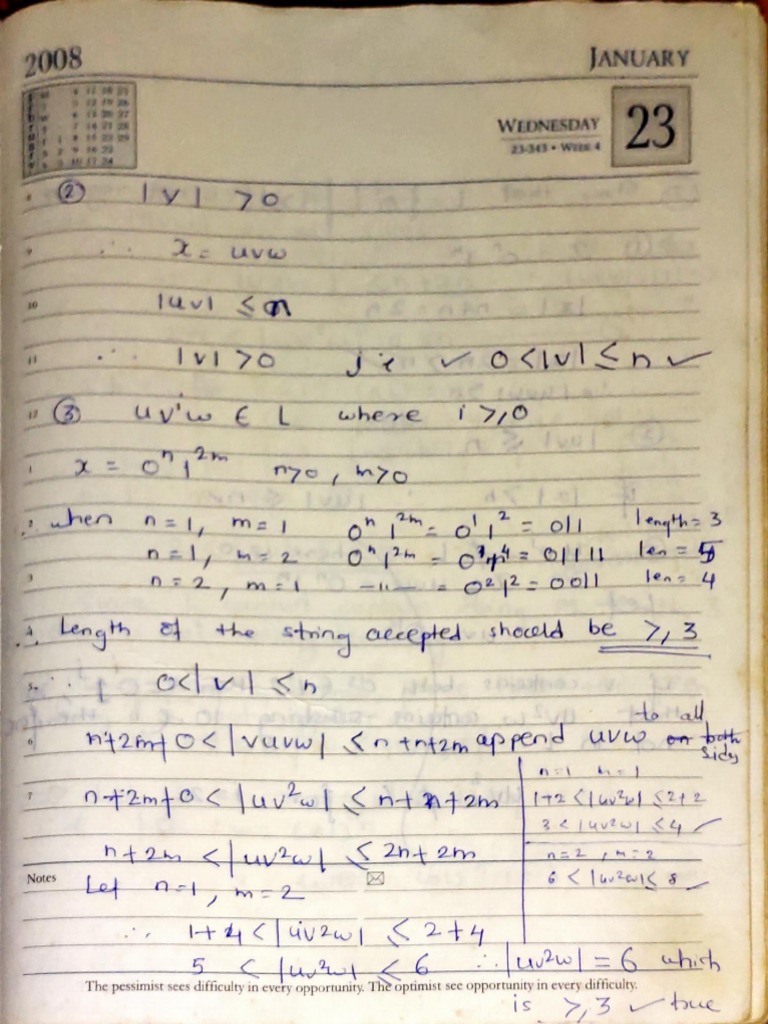 2008
JANUARY
WEDNESDAY
23-343 • WEEK 4
23
8 ② |v| > 0
9 ∴ x = uvw
10 |uv| ≤ n
11 ∴ |v| > 0 i.e ✓ 0 < |v| ≤ n ✓
12 ③ uvⁱw ∈ L where i ≥ 0
1 x = 0ⁿ1²ᵐ n>0, m>0
2 when n = 1, m = 1 0ⁿ1²ᵐ = 0¹1² = 011 length = 3
n = 1, m = 2 0ⁿ1²ᵐ = 0¹1⁴ = 01111 len = 5
3 n = 2, m = 1 —11— = 0²1² = 0011 len = 4
4 ∴ Length of the string accepted should be ≥ 3
5 ∴ 0 < |v| ≤ n
6 n+2m+0 < |vuvw| ≤ n+n+2m append uvw to all sides
7 n+2m+0 < |uv²w| ≤ n+n+2m
n=1 m=1
1+2 < |uv²w| ≤ 2+2
3 < |uv²w| ≤ 4 ✓
n+2m < |uv²w| ≤ 2n+2m
n=2, m=2
6 < |uv²w| ≤ 8 ✓
Notes
Let n=1, m=2
∴ 1+4 < |uv2w| ≤ 2+4
5 < |uv²w| ≤ 6 ∴ |uv²w| = 6 which
The pessimist sees difficulty in every opportunity. The optimist see opportunity in every difficulty.
is ≥ 3 ✓ true